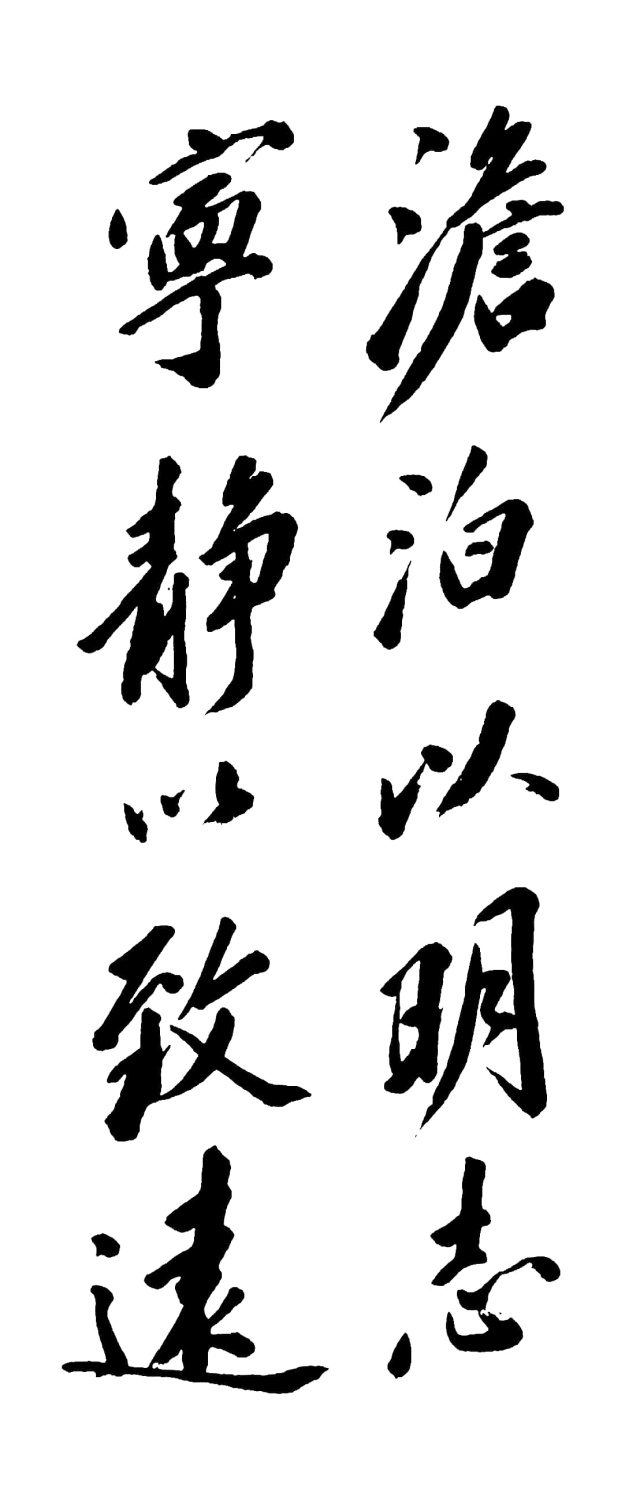 澹泊以明志
寧靜以致遠